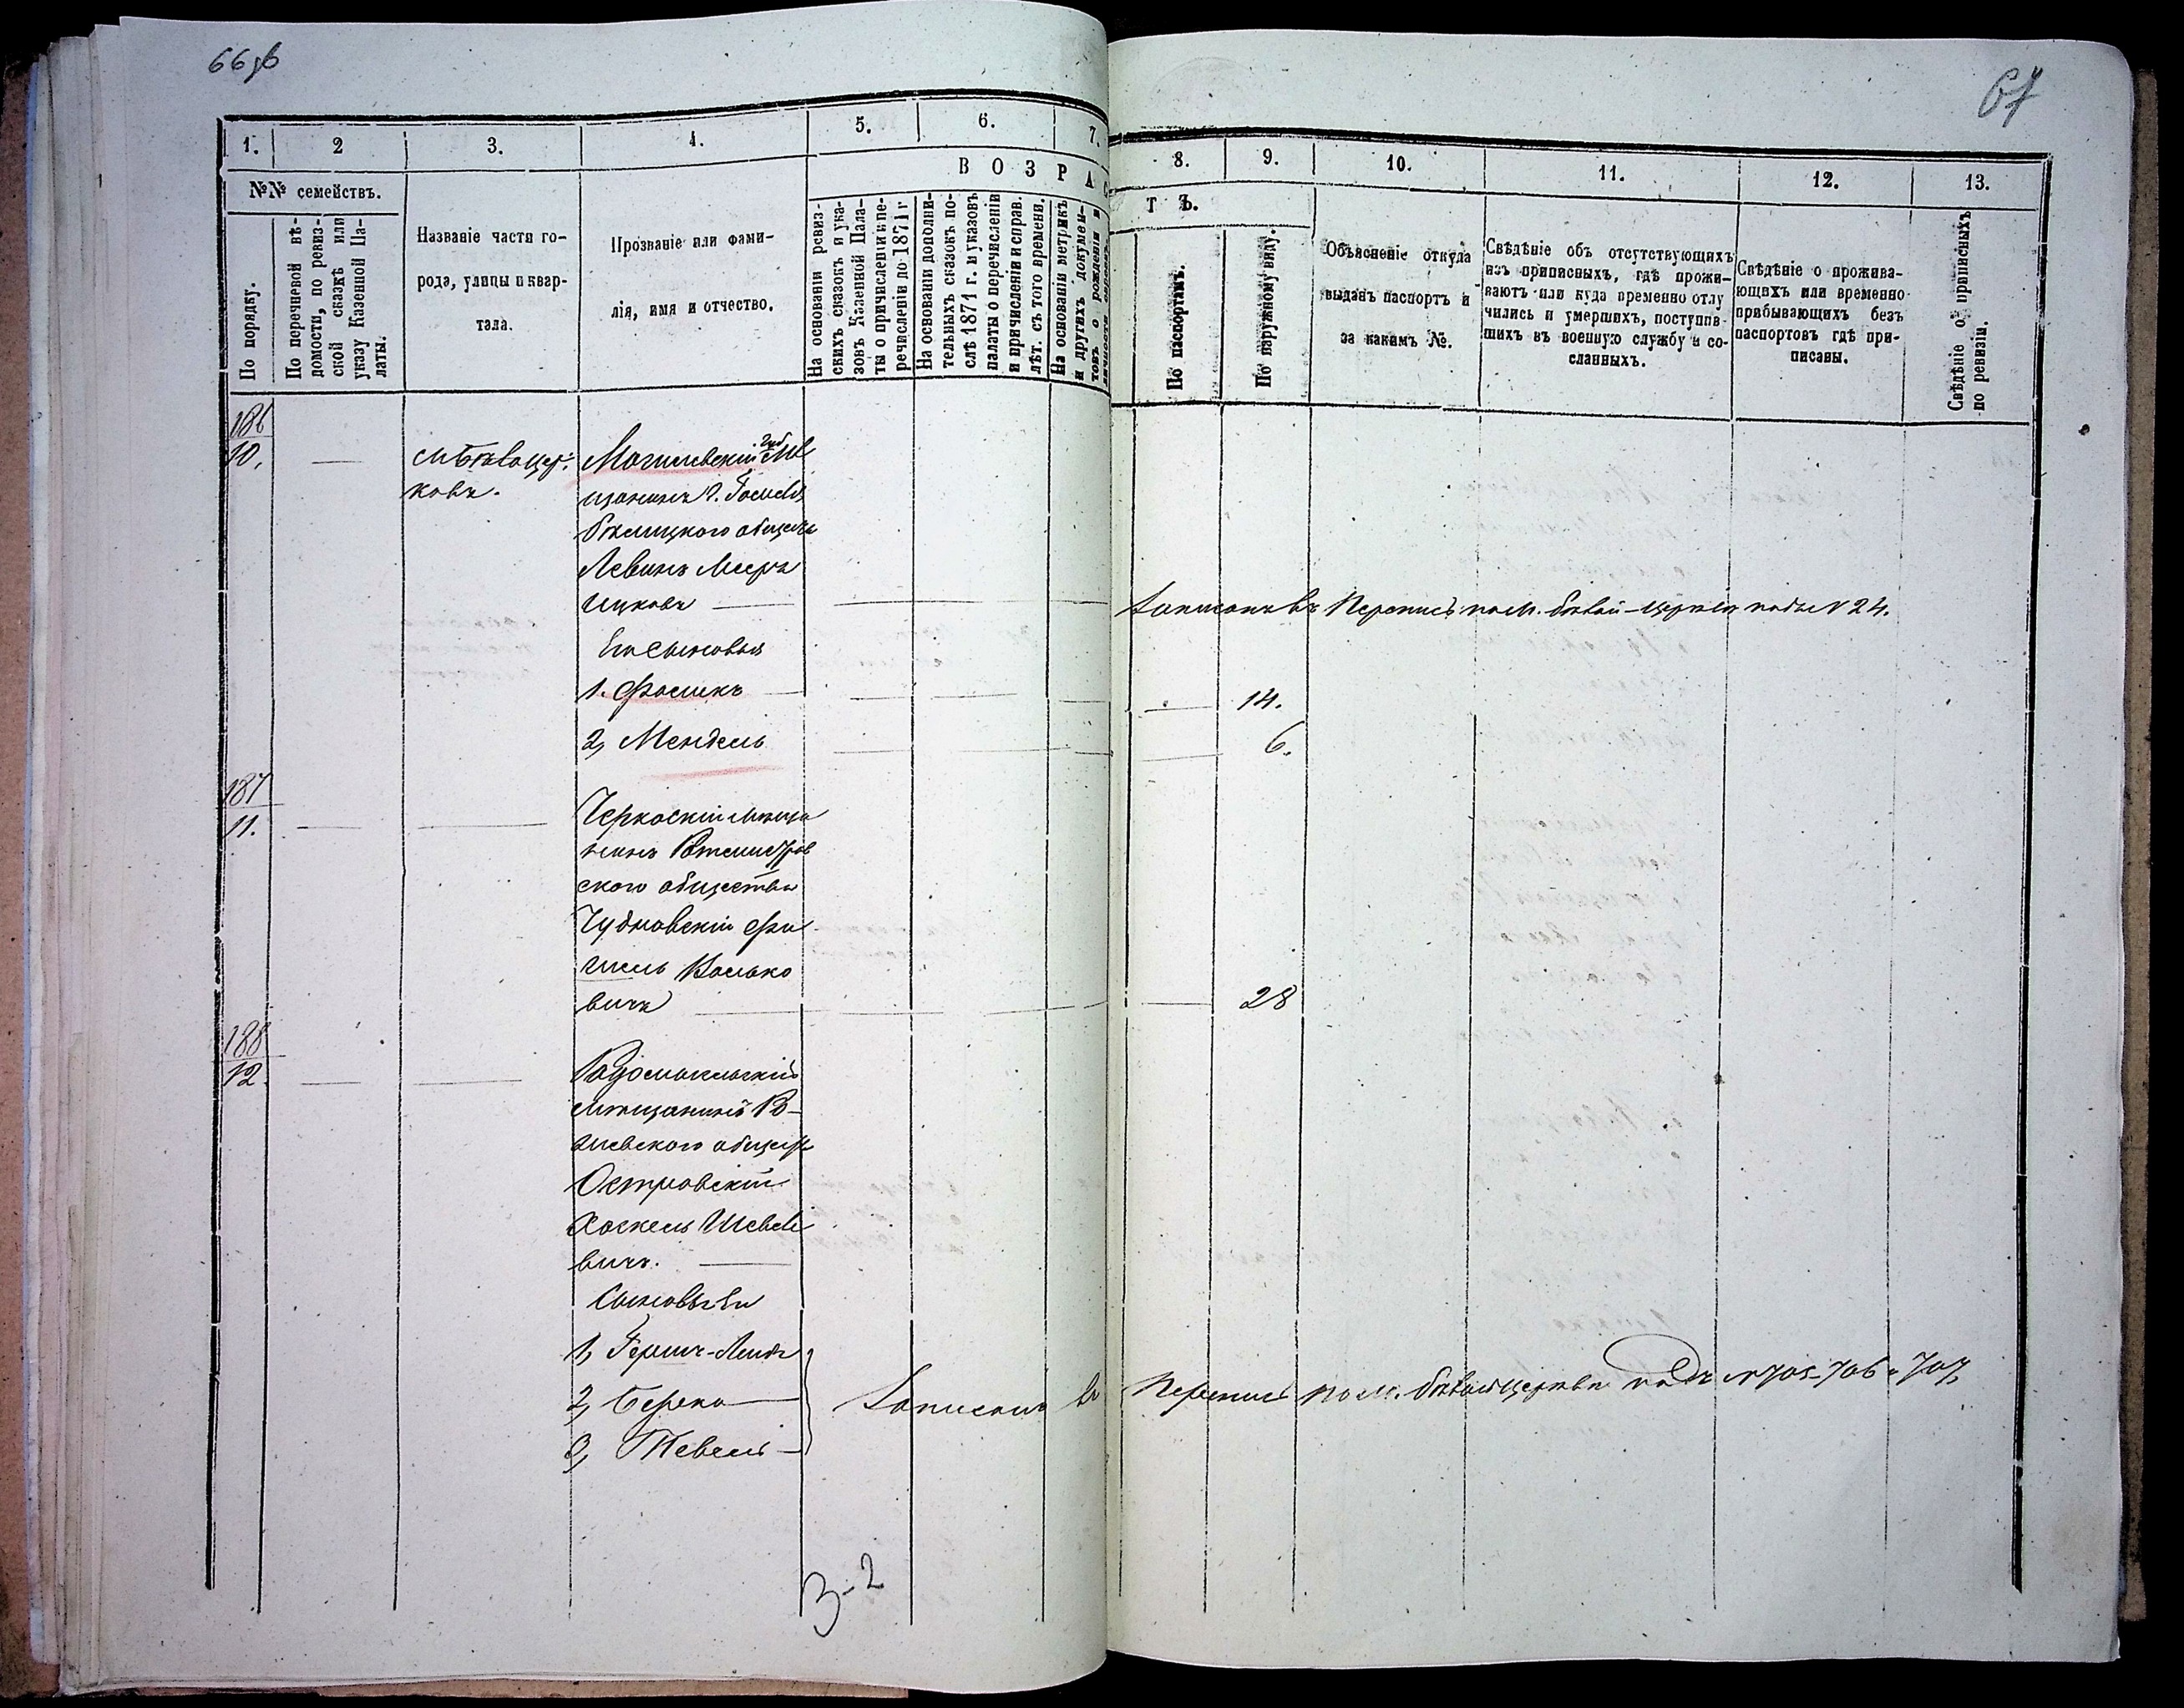 66 об
67
1.
2
3.
4.
5.
6.
7.
8.
9.
10.
11.
12.
13.
№№ семействъ.
ВОЗРАС
ТЪ.
По порядку.
По перечневой вѣ-
домости, по ревиз-
ской сказкѣ или
указу Казенной Па-
латы.
Названіе части го-
рода, улицы и квар-
тала.
Прозваніе или фами-
лія, имя и отчество.
На основаніи ревиз-
скихъ сказокъ и ука-
зовъ Казенной Пала-
ты о причисленіи и пе-
речисленіи до 1871 г
На основаніи дополни-
тельныхъ сказокъ по-
слѣ 1871 г. и указовъ
палаты о перечисленіи
и причисленіи и справ.
лѣт. съ того времени.
На основаніи метрикъ
и другихъ докумен-
товъ о рожденіи и
По паспортамъ.
По наружному виду.
Объясненіе откуда
выданъ паспортъ и
за какимъ №.
Свѣдѣніе объ отсутствующихъ
изъ приписныхъ, гдѣ прожи-
ваютъ или куда временно отлу
чились и умершихъ, поступив-
шихъ въ военную службу и со-
сланныхъ.
Свѣдѣніе о прожива-
ющихъ или временно
прибывающихъ безъ
паспортовъ гдѣ при-
писаны.
Свѣдѣніе о приписныхъ
по ревизіи.
186
10.
м. Бѣлаоцер:
ковъ.
Могилевскій Губ мѣ
щанинъ г. Гомеля
Бѣлицкого общества
Левинъ Мееръ
Ицковъ
Записанъ въ Перепись по м. Бѣлой-Церкви подъ N 24.
Его сыновья
1. Фроликъ
14.
2, Мендель
6.
187
11.
Черкаскій мѣща
нинъ Ротмистров
ского общества
Чудновскій Фи
шель Волько
вичъ
28
188
12.
Радомысльскій
мѣщанинъ
общест
Островскій
Хаскель Шевеле
вичъ.
Сыновья Его
1, Гершъ-Лейбъ
2, Берко
3, Тевель
Записаны въ Перепись по м. Бѣлой Церкви подъ N 705-706 и 707,
3-2